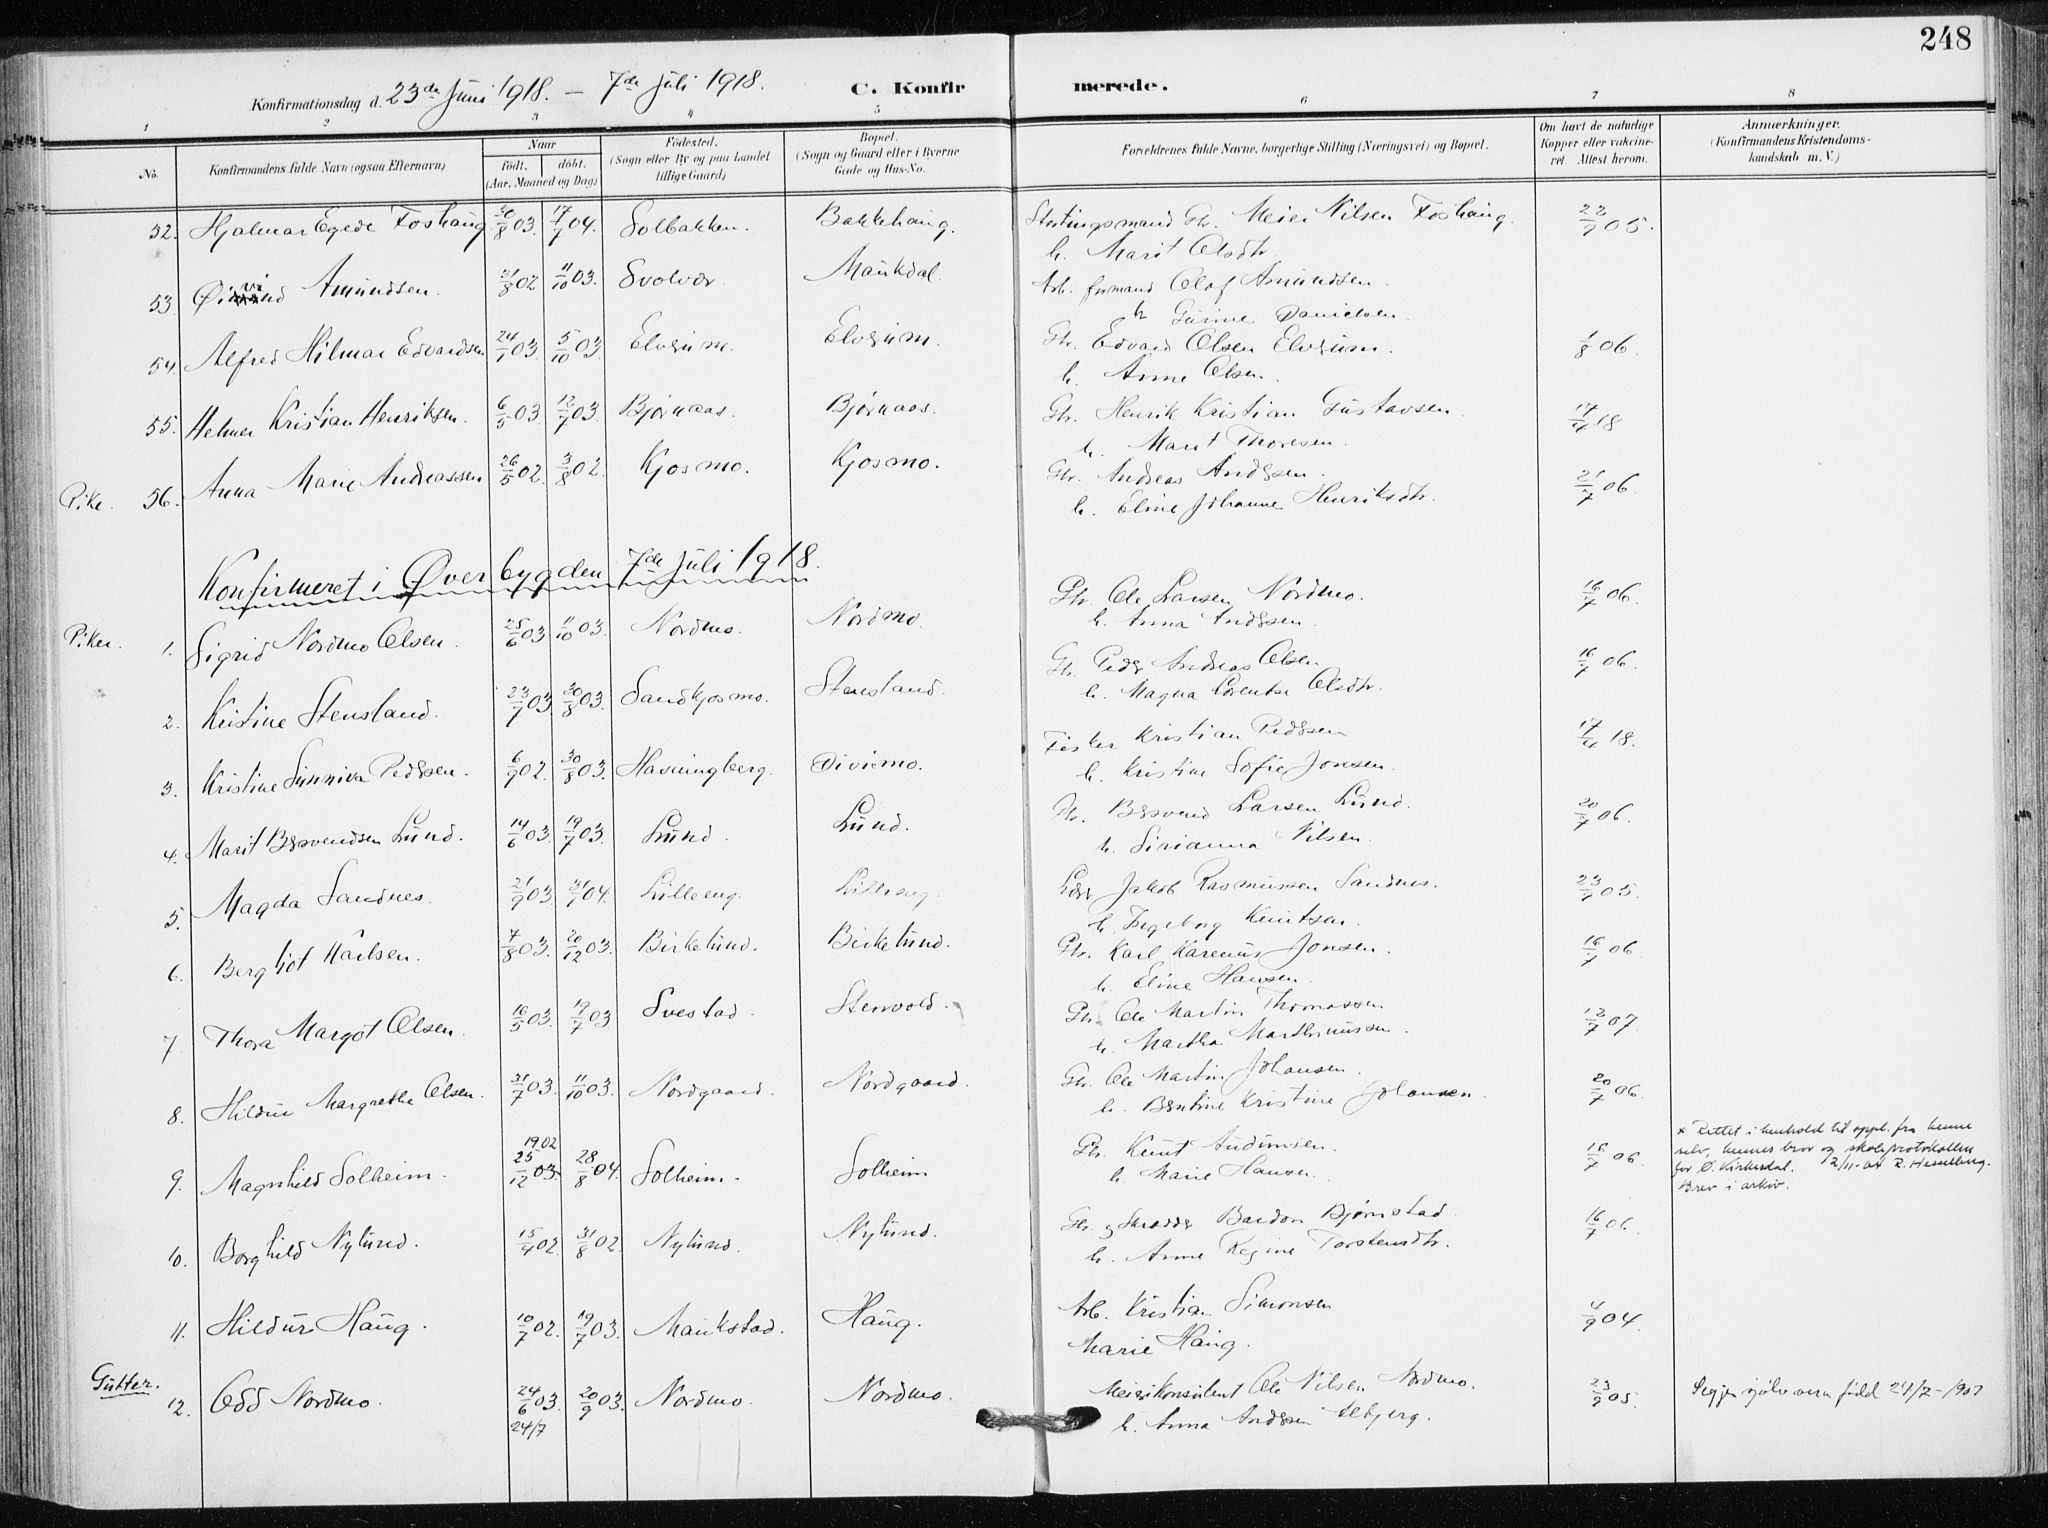 248
Konfirmationsdag d. 23de Juni 1918. – 7de Juli 1918. C. Konfirmerede.
1 2 3 4 5 6 7 8
No. Konfirmandens fulde Navn (ogsaa Efternavn) Naar født. døbt. (Aar, Maaned og Dag) Fødested. (Sogn eller By og paa Landet tillige Gaard) Bopæl. (Sogn og Gaard eller i Byerne Gade og Hus-No. Forældrenes fulde Navne, borgerlige Stilling (Næringsvei) og Bopæl. Om havt de naturlige Kopper eller vakcineret. Attest herom. Anmærkninger. (Konfirmandens Kristendomskundskab m. V.)
52. Hjalmar Egede Foshaug 30/8 03. 17/7 04. Solbakken. Bakkehaug. Stortingsmand Gbr. Meier Nilsen Foshaug. 22/9 05.
h. Marit Olsdtr.
53. Øivind Amundsen. 31/8 02 11/10 03. Svolvær Maukdal. Arb. formand Olaf Amundsen.
h. Gurine Danielsen.
54. Alfred Hilmar Edvardsen 24/7 03. 5/10 03. Elvrum. Elvrum. Gbr. Edvard Olsen Elvrum. 1/8 06.
h. Anne Olsen.
55. Helmer Kristian Henriksen. 6/5 03. 12/7 03. Bjørnaas. Bjørnaas. Gbr. Henrik Kristian Gustavsen. 17/4 18
h. Marit Thoresen.
Pike. 56. Anna Marie Andreassen 26/5 02. 3/8 02. Kjosmo. Kjosmo. Gbr. Andreas Andersen. 21/7 06.
h. Eline Johanne Henriksdtr.
Konfirmeret i Øverbygden 7de Juli 1918.
Piker. 1. Sigrid Nordmo Olsen. 25/6 03 11/10 03. Nordmo. Nordmo. Gbr. Ole Larsen Nordmo. 16/7 06.
h. Anna Andersen.
2. Kristine Stensland. 23/7 03. 30/8 03. Sandkjosmo. Stensland. Gbr. Peder Andreas Olsen 16/7 06.
h. Magna Lorentse Olsdtr.
3. Kristine Sunniva Pedersen. 6/9 02. 30/8 03. Havningberg. Divimo. Fisker Kristian Pedersen 17/4 18.
h. Kristine Sofie Jonsen.
4. Marit Bersvendsen Lund. 14/6 03. 19/7 03. Lund. Lund. Gbr. Bersvend Larsen Lund. 20/7 06.
h. Sirianna Nilsen.
5. Magda Sandnes. 21/9 03. 31/7 04. Lilleeng. Lilleeng. Jakob Rasmussen Sandnes. 23/9 05.
h. Ingeborg Knutsen.
6. Bergljot Karlsen. 7/8 03. 20/12 03. Birkelund. Birkelund. Gbr. Karl Karenius Jonsen. 16/7 06.
h. Eline Hansen.
7. Thora Margot Olsen. 16/5 03. 19/7 03 Svestad. Stenvold. Gbr. Ole Martin Thomassen 12/7 07.
h. Martha Marthinussen.
8. Hildur Margrethe Olsen. 31/7 03. 11/10 03. Nordgaard. Nordgaard. Gbr. Ole Martin Johansen. 20/7 06.
h. Berntine Kristine Johansen.
9. Magnhild Solheim. 1902 25/12 03. 28/8 04. Solheim. Solheim Gbr. Knut Audunsen. 16/7 06. x Rettet i henhold til oppl. fra henne
h. Marie Hansen. selv, hennes bror og skoleprotokollen
for Ø. Kirkesdal. 2/11-
Brev i arkiv.
10. Borghild Nylund. 15/4 02. 31/8 02. Nylund. Nylund. Gbr. og Skrædder Bardon Bjørnstad. 16/7 06.
h. Anne Regine Torstensdtr.
11. Hildur Haug. 10/7 02. 19/7 03. Maukstad. Haug. Arb. Kristian Simonsen 4/9 04.
Marie Haug.
Gutter. 12. Odd Nordmo. 24/6 03. 20/9 03. Nordmo. Nordmo. Meierikonsulent Ole Nilsen Nordmo. 23/9 05. Segjer sjølv vera født 24/7-1903
24/7 h. Anna Andersen Albjerg.